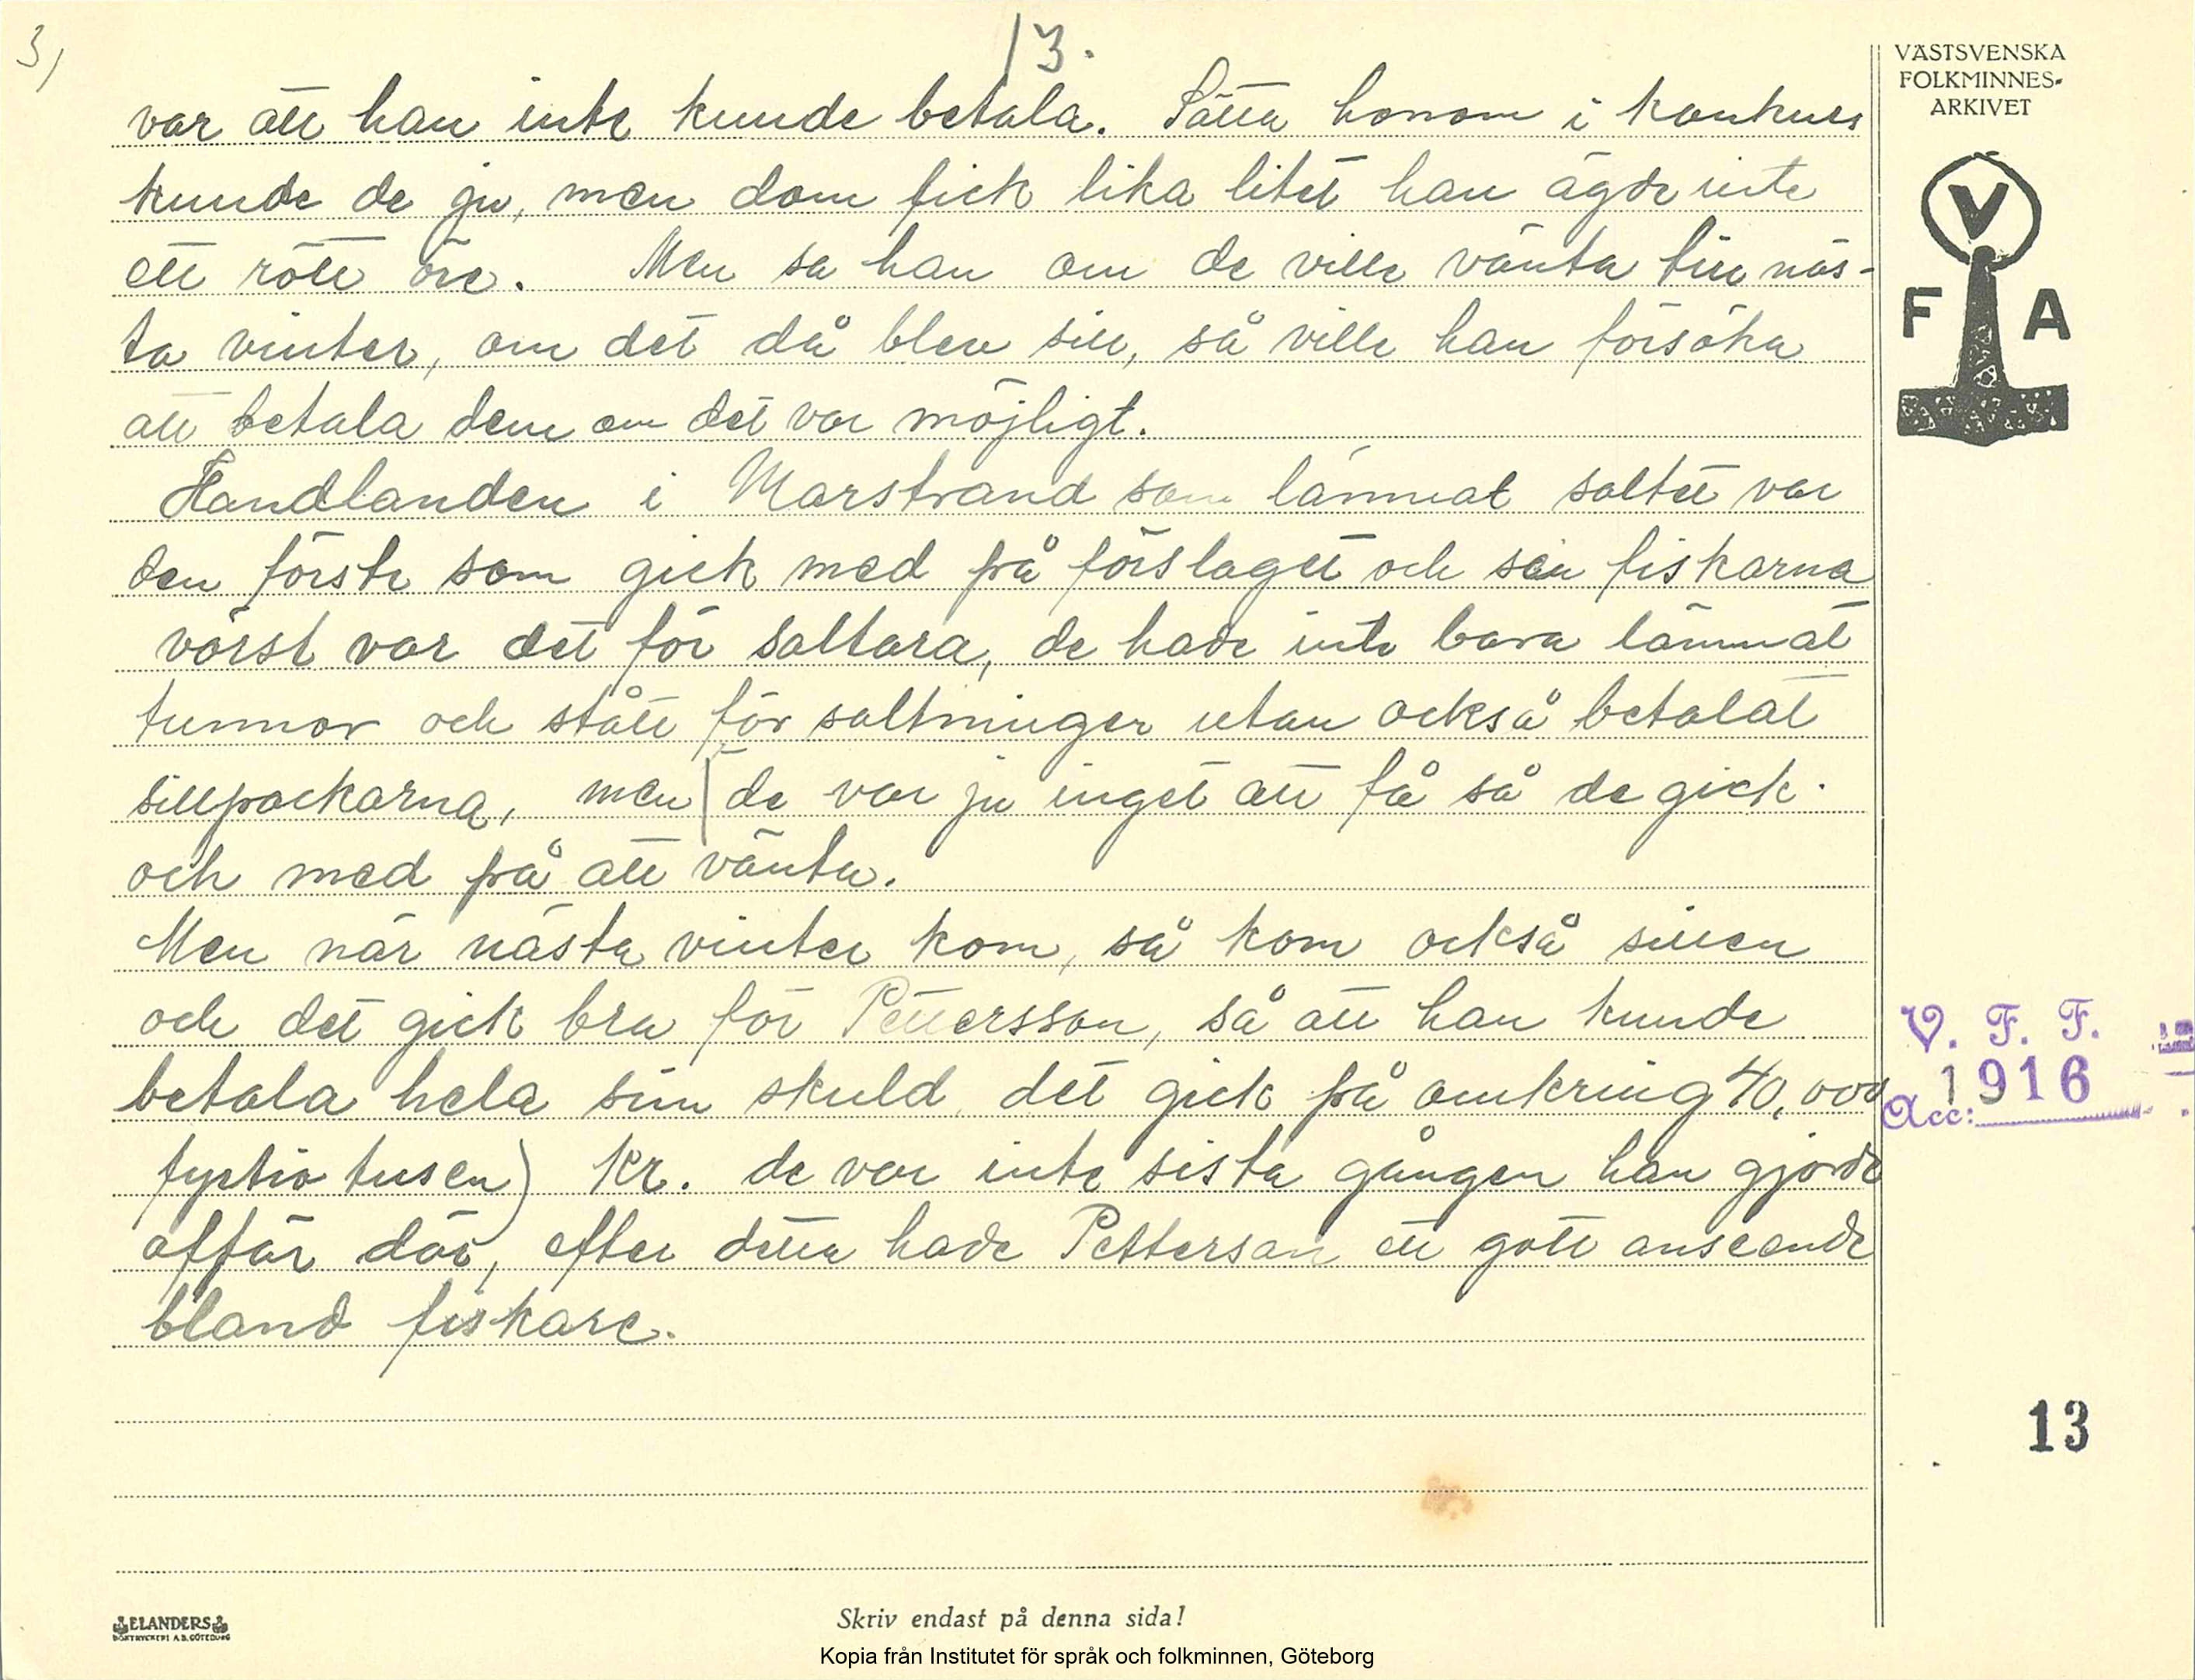 3)
13.
VÄSTSVENSKA
FOLKMINNES-
ARKIVET
V
F A
var att han inte kunde betala. Sätta honom i konkurs
kunde de ju, men dom fick lika litet han ägde inte
ett rött öre. Men sa han om de ville vänta till näs-
ta vinter, om det då blev sill, så ville han försöka
att betala dem om det var möjligt.
Handlanden i Marstrand som lämnat saltet var
den förste som gick med på förslaget och sen fiskarna
värst var det för saltara, de hade inte bara lämnat
tunnor och stått för saltninger utan också betalat
sillpackarna, men de var ju inget att få så de gick
och med på att vänta.
Men när nästa vinter kom, så kom också sillen
och det gick bra för Pettersson, så att han kunde
betala hela sin skuld det gick på omkring 40,000
fyrtio tusen) kr. de var inte sista gången han gjorde
affär där, efter detta hade Petterson ett gott anseende
bland fiskare.
V. F. F.
Acc: 1916
13
ELANDERS
BOKTRYCKERI A.B. GÖTEBORG
Skriv endast på denna sida!
Kopia från Institutet för språk och folkminnen, Göteborg